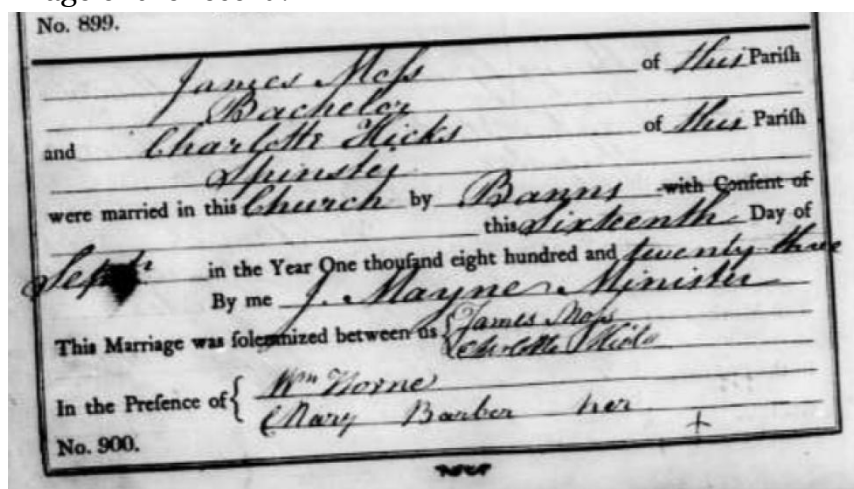 No. 899.
James Moſs of this Pariſh
Bachelor
and Charlotte Hicks of this Pariſh
Spinster
were married in this Church by Banns with Conſent of
this Sixteenth Day of
Sept in the Year One thouſand eight hundred and twenty three
By me J. Mayne Minister
This Marriage was ſolemnized between us { James Moſs
Charlotte Hicks
In the Preſence of { Wm Horne
Mary Barber her +
No. 900.